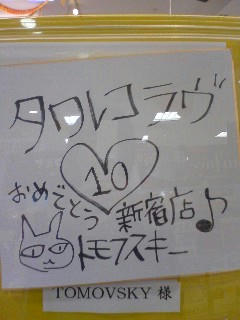 タワレコラヴ
10
おめでとう
新宿店♪
トモフスキー
TOMOVSKY 様